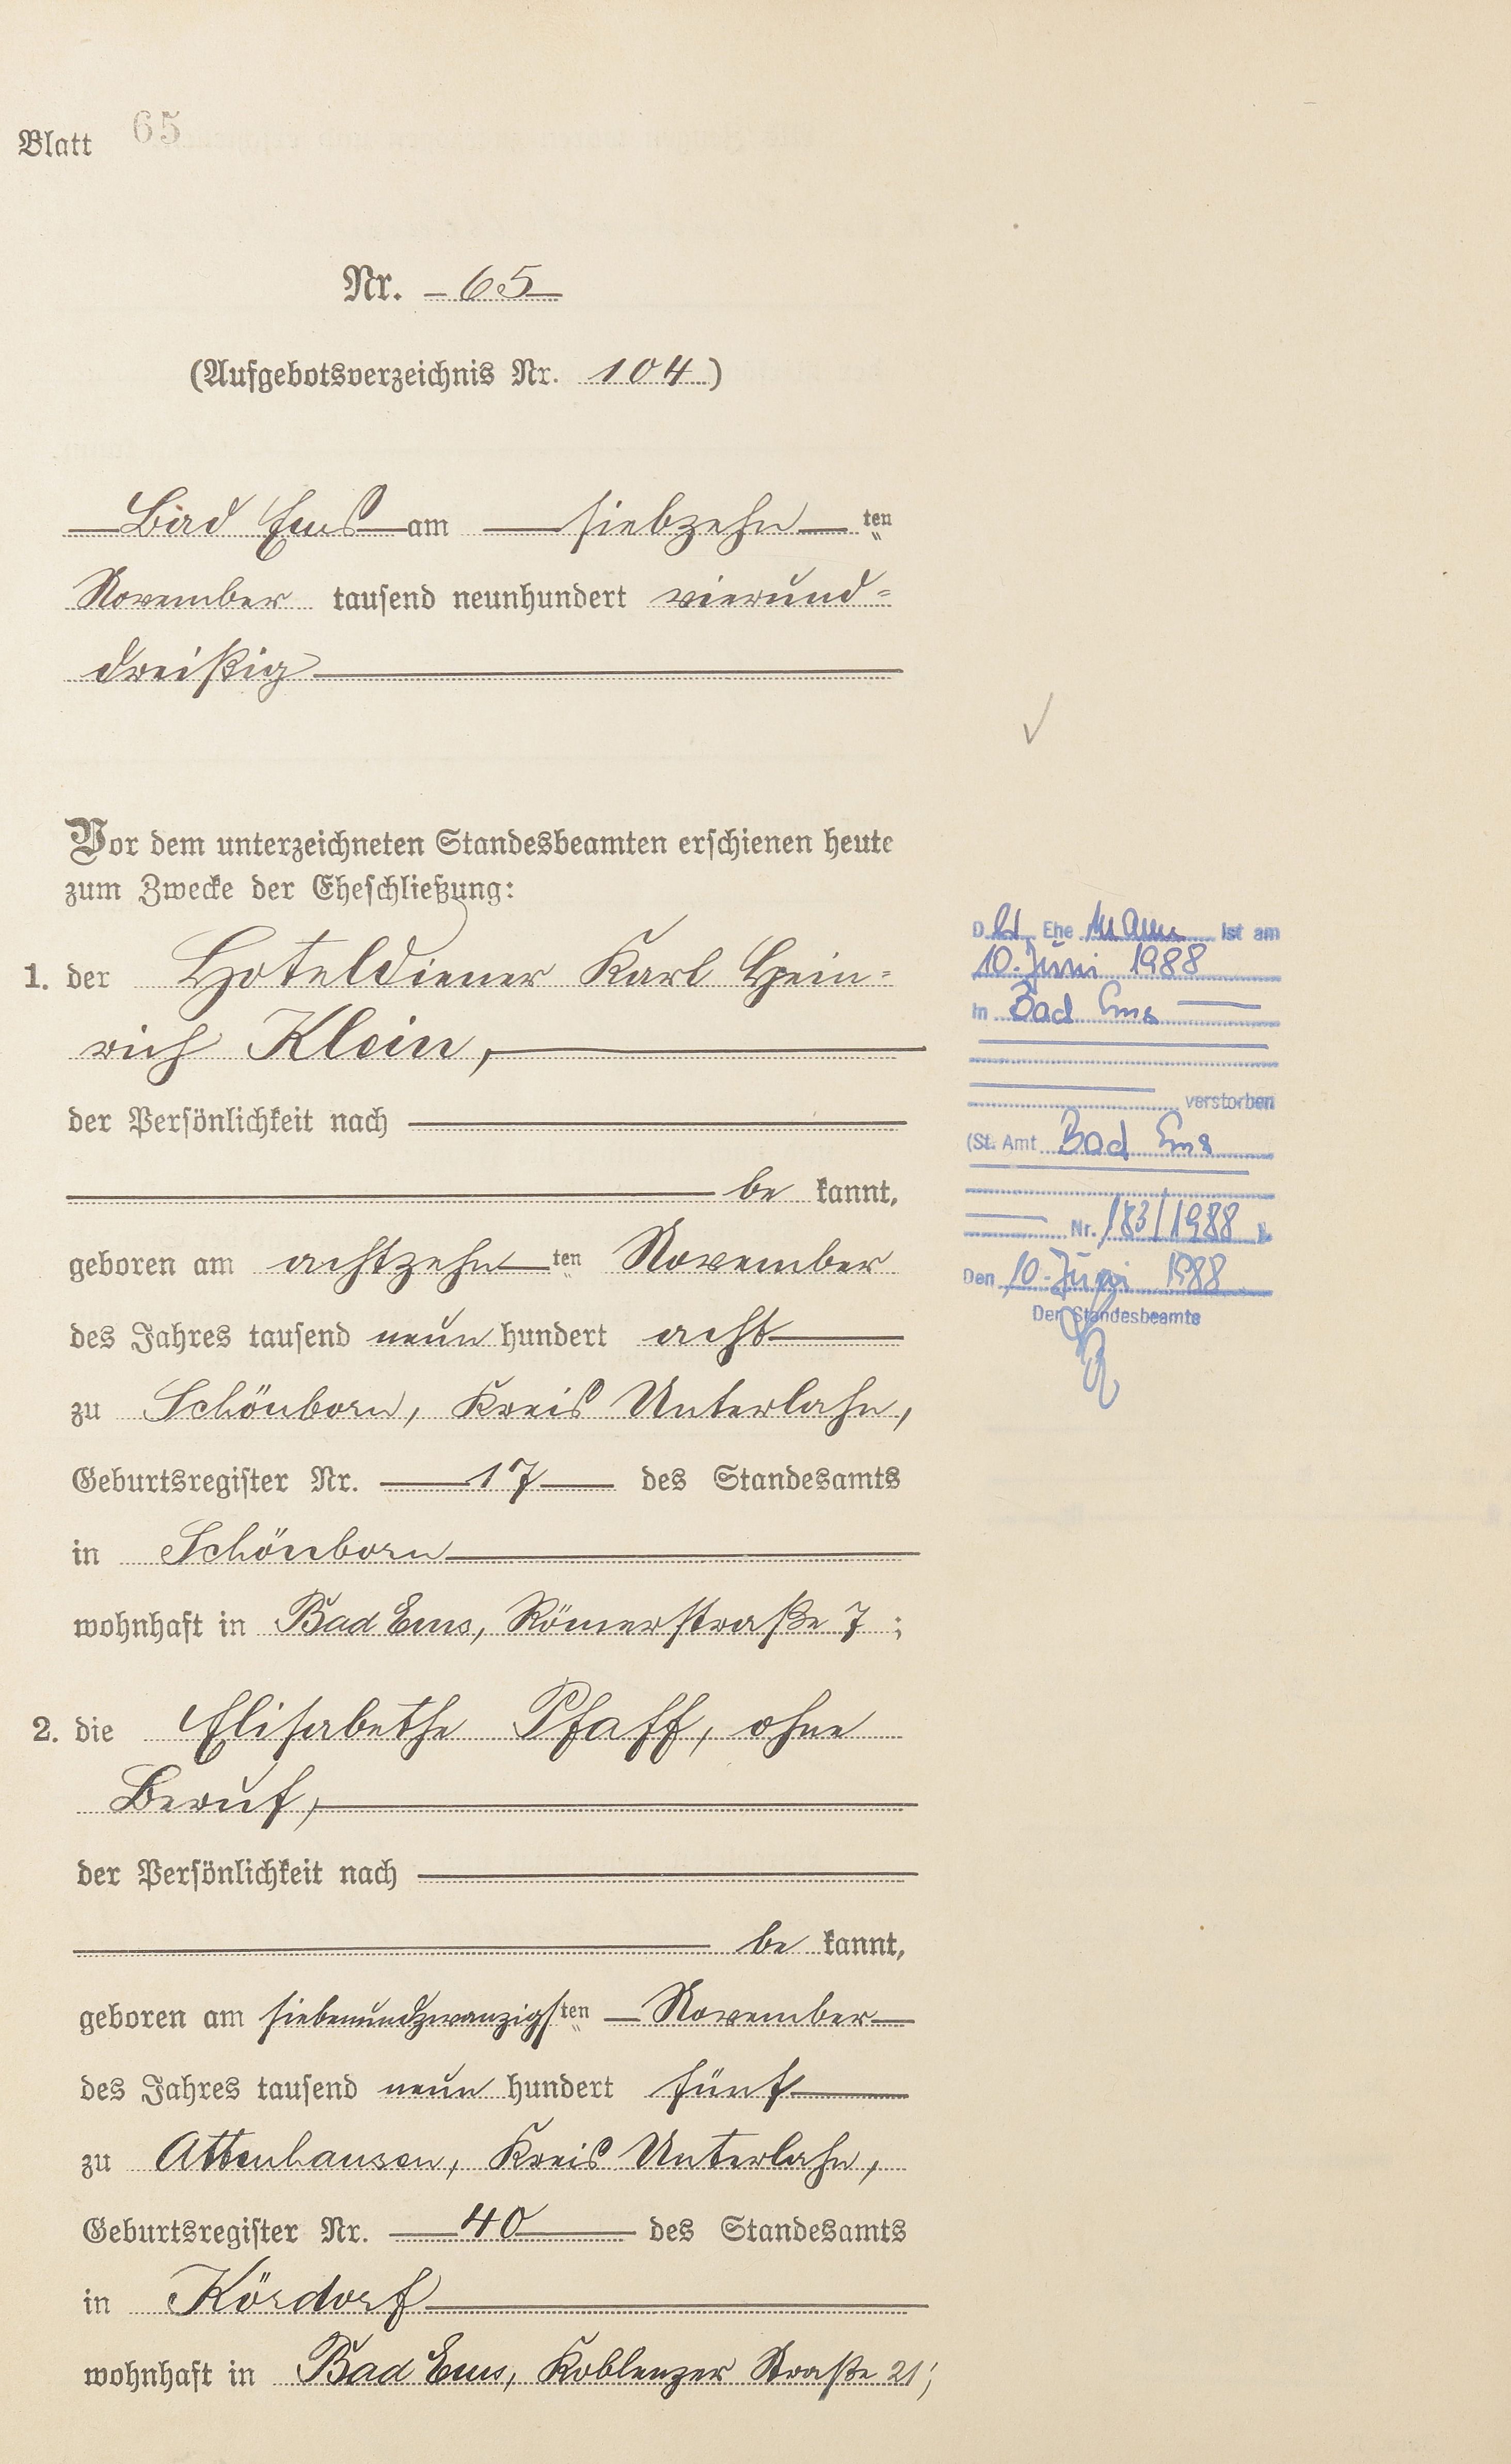 Blatt 65
Nr. 65
(Aufgebotsverzeichnis Nr. 104)
Bad Ems am siebzehn ten
November tausend neunhundert vierund=
dreißig
Vor dem unterzeichneten Standesbeamten erschienen heute
zum Zwecke der Eheschließung:
1. der Hoteldiener Karl Hein=
rich Klein,
der Persönlichkeit nach
be kannt,
geboren am achtzehn ten November
des Jahres tausend neun hundert acht
zu Schönborn, Kreis Unterlahn,
Geburtsregister Nr. 17 des Standesamts
in Schönborn
wohnhaft in Bad Ems, Römerstraße 7;
2. die Elisabethe Pfaff, ohne
Beruf,
der Persönlichkeit nach
be kannt,
geboren am siebenundzwanzigsten November
des Jahres tausend neun hundert fünf
zu Attenhausen, Kreis Unterlahn,
Geburtsregister Nr. 40 des Standesamts
in Kördorf
wohnhaft in Bad Ems, Koblenzer Straße 21;
Der Ehemann ist am
10. Juni 1988
in Bad Ems
verstorben
(St. Amt Bad Ems
Nr. 183/1988
Den 10. Juni 1988
Der Standesbeamte